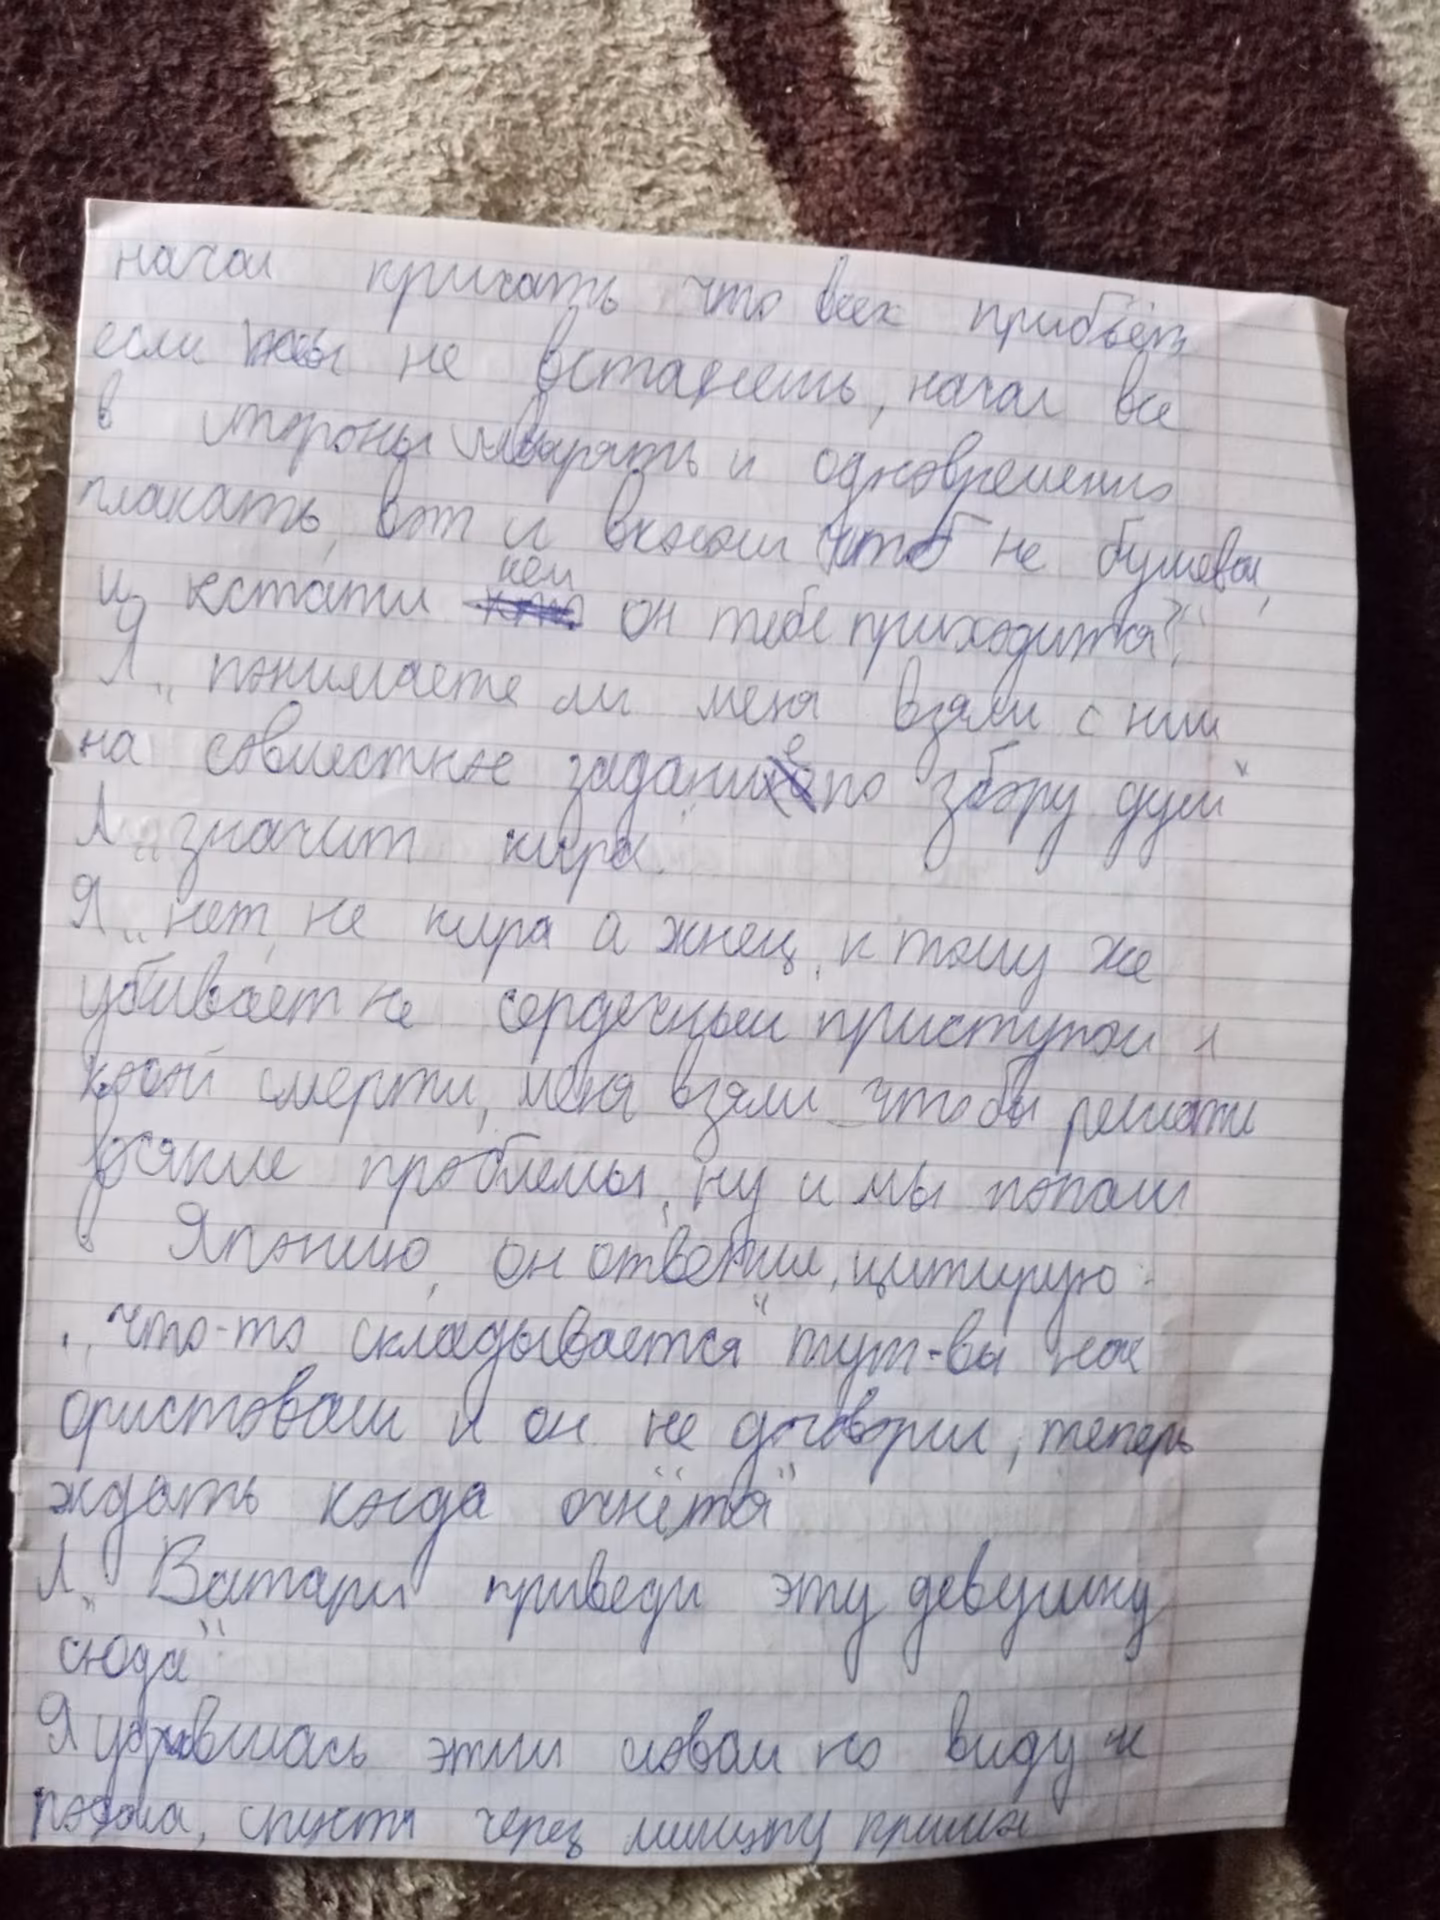 начал кричать что всех прибьёт
если ты не встанешь, начал все
в стороны швырять и одновременно
плакать, вот и вкололи чтоб не бушевал,
и кстати кем он тебе приходится?"
Я „понимаете ли меня взяли с ним
на совместное задание по збору душ"
Л „значит кира"
Я „нет, не кира а жнец, к тому же
убивает не сердечным приступом а
косой смерти, меня взяли чтобы решать
всякие проблемы, ну и мы попали
в Японию, он ответил, цитирую:
„что-то складывается" тут-вы нас
ористовали и он не договорил, теперь
ждать когда очнётся"
Л „Ватари приведи эту девушку
сюда"
Я удивилась этим словам но виду не
подала, спустя через минуту пришёл